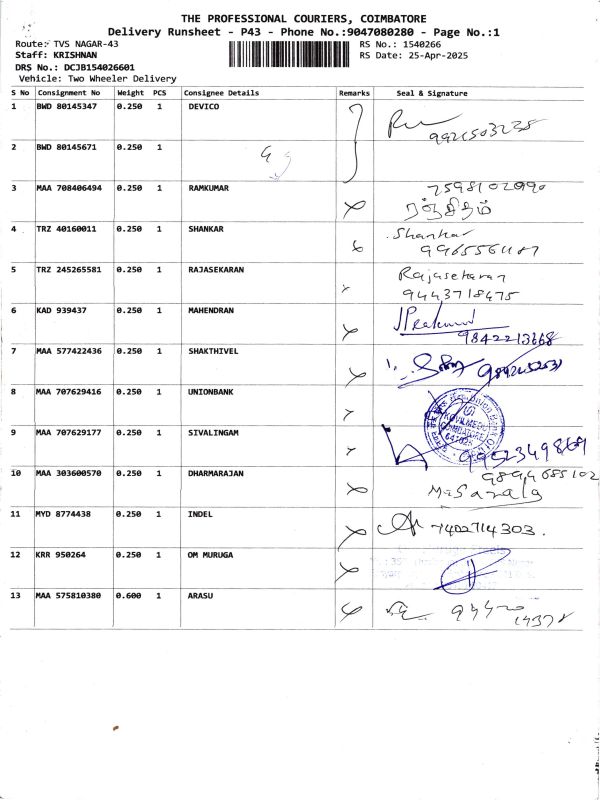 THE PROFESSIONAL COURIERS, COIMBATORE
Delivery Runsheet - P43 - Phone No.:9047080280 - Page No.:1
Route: TVS NAGAR-43
RS No.: 1540266
Staff: KRISHNAN
RS Date: 25-Apr-2025
DRS No.: DCJB154026601
Vehicle: Two Wheeler Delivery
S No Consignment No Weight PCS Consignee Details Remarks Seal & Signature
1 BWD 80145347 0.250 1 DEVICO
2 BWD 80145671 0.250 1
3 MAA 708406494 0.250 1 RAMKUMAR
ரஞ்சிதம்
4 TRZ 40160011 0.250 1 SHANKAR Shankar
5 TRZ 245265581 0.250 1 RAJASEKARAN Rajasekaran
9443718475
6 KAD 939437 0.250 1 MAHENDRAN
9842213668
7 MAA 577422436 0.250 1 SHAKTHIVEL
8 MAA 707629416 0.250 1 UNIONBANK
9 MAA 707629177 0.250 1 SIVALINGAM
10 MAA 303600570 0.250 1 DHARMARAJAN
11 MYD 8774438 0.250 1 INDEL 7402714303.
12 KRR 950264 0.250 1 OM MURUGA
13 MAA 575810380 0.600 1 ARASU